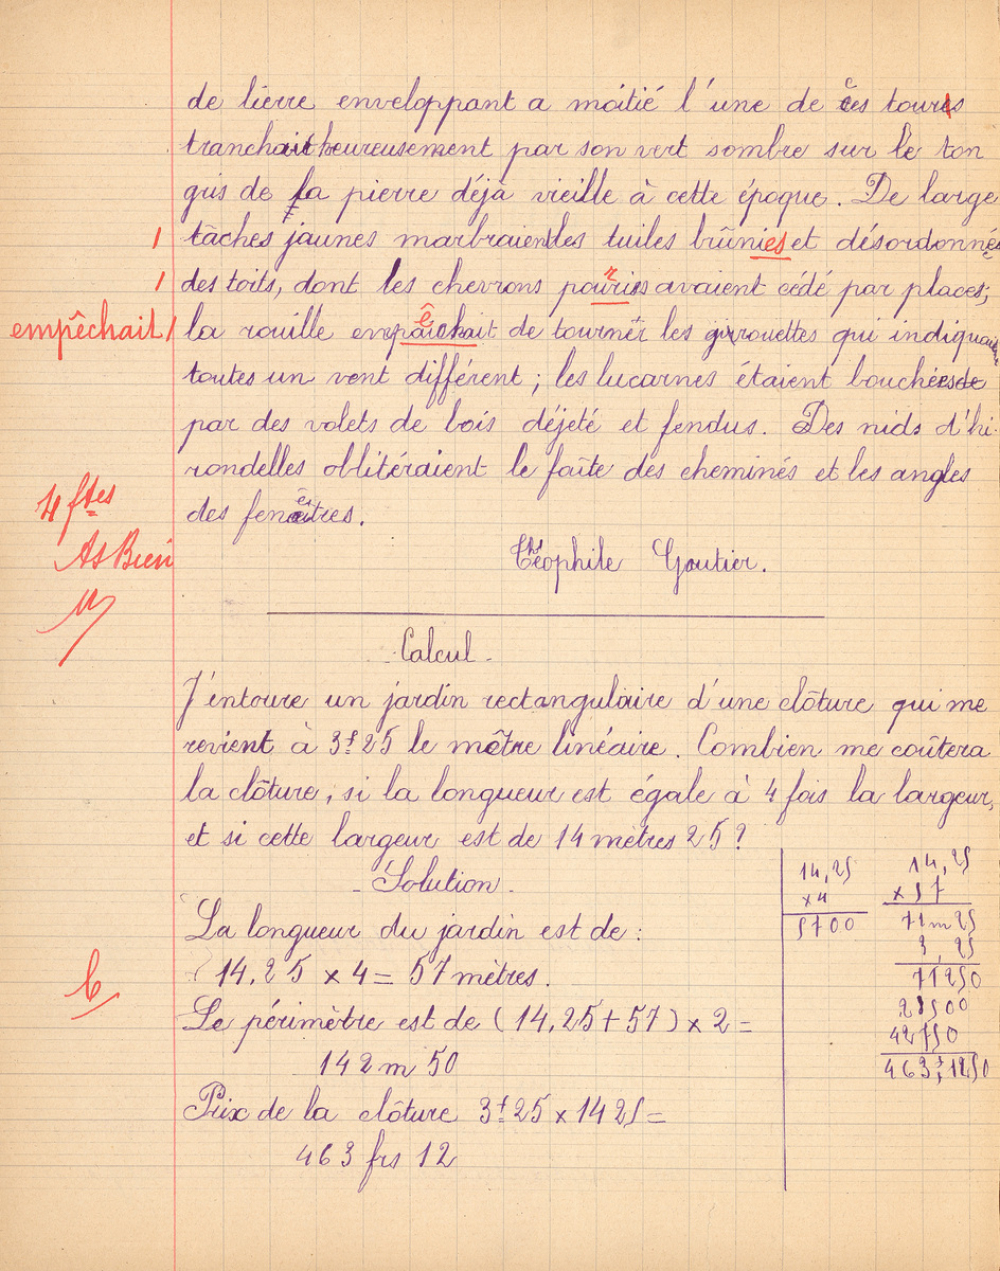 de lierre enveloppant a moitié l'une de ces tours
tranchait heureusement par son vert sombre sur le ton
gris de la pierre déjà vieille à cette époque. De large
1 tâches jaunes marbraient les tuiles brûnies et désordonnées
1 des toits, dont les chevrons pouris avaient cédé par places;
r
empêchait 1 la rouille empaichait de tourner les girouettes qui indiquaient
ê
toutes un vent différent ; les lucarnes étaient bouchées
par des volets de bois déjeté et fendus. Des nids d'hi-
rondelles oblitéraient le faîte des cheminés et les angles
des fenêtres.
4 ftes
As Bien
Théophile Gautier.
Calcul.
J'entoure un jardin rectangulaire d'une clôture qui me
revient à 3f25 le mètre linéaire. Combien me coûtera
la clôture, si la longueur est égale à 4 fois la largeur,
et si cette largeur est de 14 mètres 25?
Solution.
La longueur du jardin est de :
14,25 x 4 = 57 mètres.
Le périmètre est de (14,25 + 57) x 2 =
142 m 50
Prix de la clôture 3f25 x 14 25 =
463 frs 12
b
14,25
x 4
5700
14,25
x 57
71m25
3,25
71250
28500
42750
463f1250